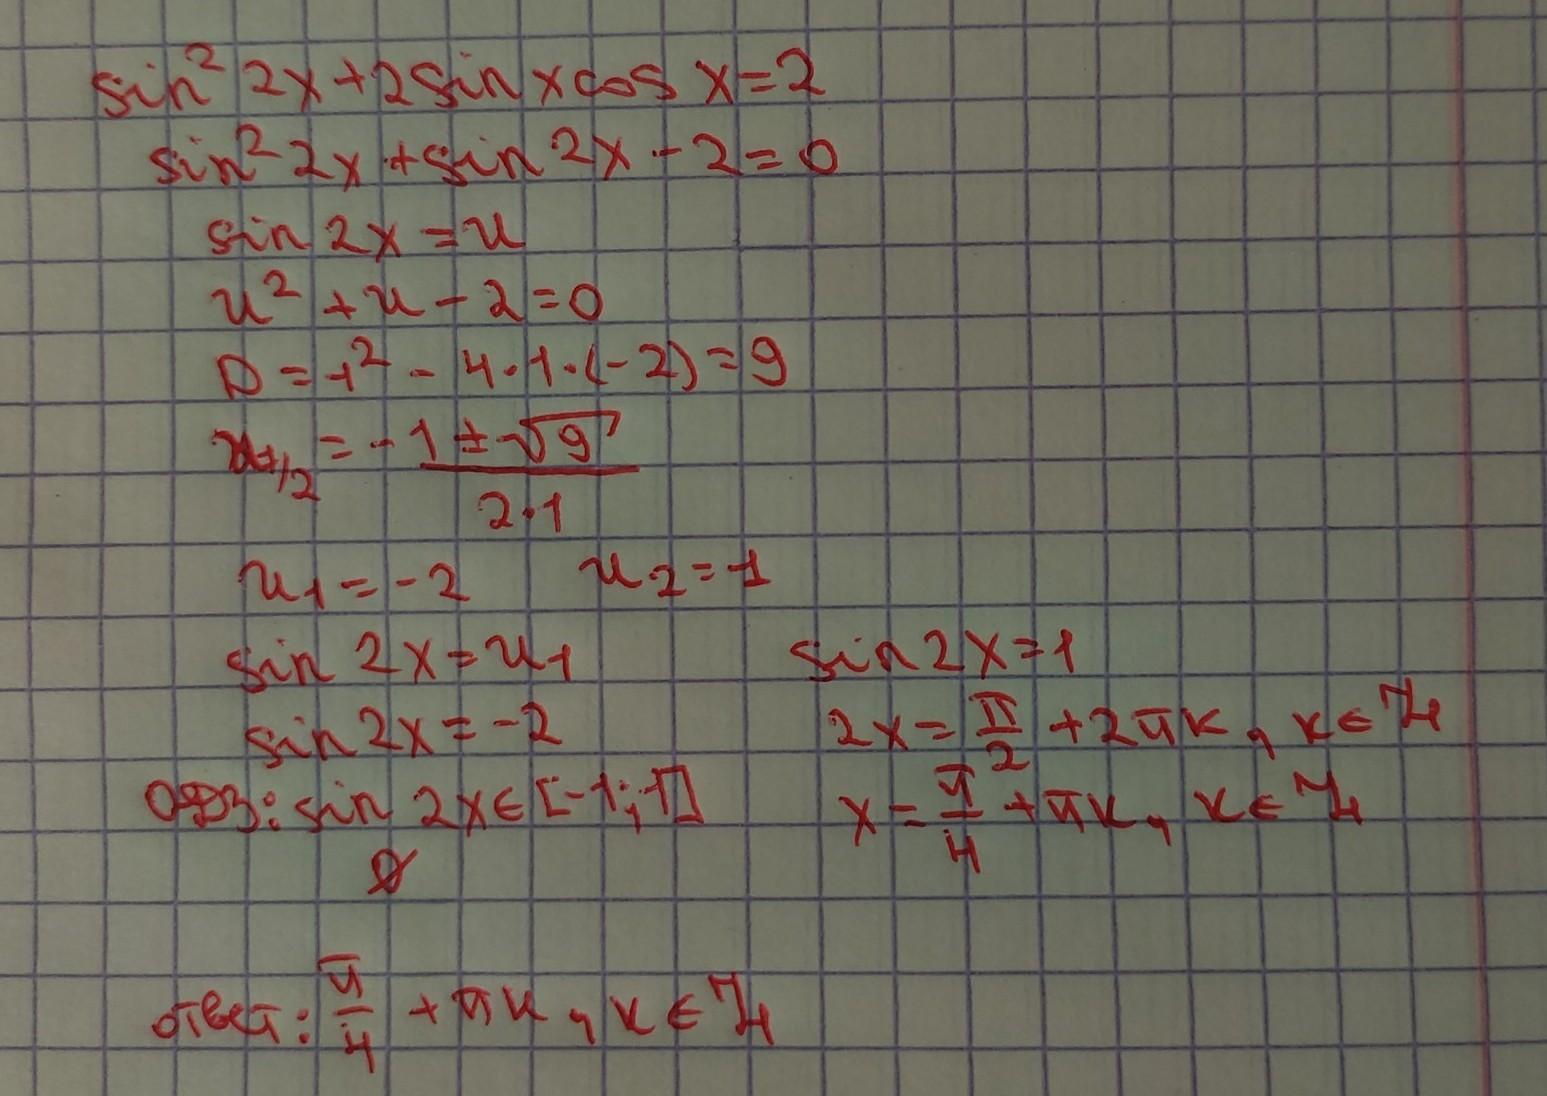 sin² 2x + 2 sin x cos x = 2
sin² 2x + sin 2x - 2 = 0
sin 2x = u
u² + u - 2 = 0
D = 1² - 4·1·(-2) = 9
u₁/₂ = -1 ± √9 / 2·1
u₁ = -2 u₂ = 1
sin 2x = u₁ sin 2x = 1
sin 2x = -2 2x = π/2 + 2πk, k ∈ ℤ
ОДЗ: sin 2x ∈ [-1; 1] x = π/4 + πk, k ∈ ℤ
∅
ответ: π/4 + πk, k ∈ ℤ